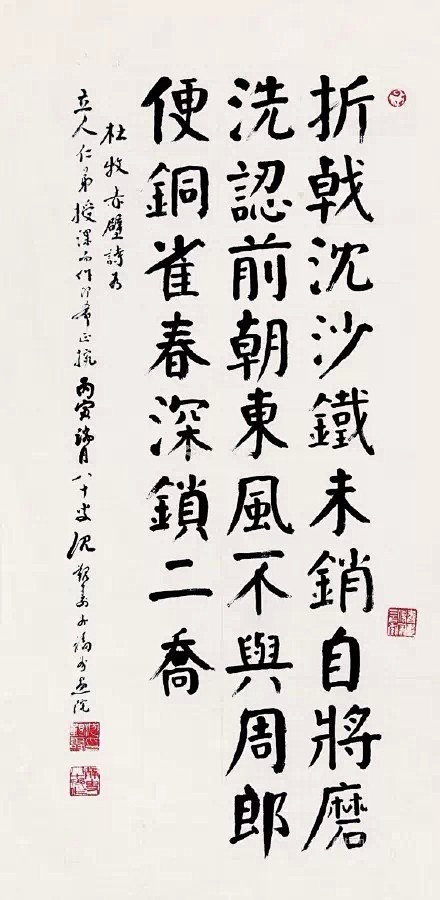 折戟沈沙鐵未銷自將磨
洗認前朝東風不與周郎
便銅雀春深鎖二喬
杜牧赤壁詩为
立人仁弟授課而作即希正腕丙寅瑞月八十叟沈覲寿